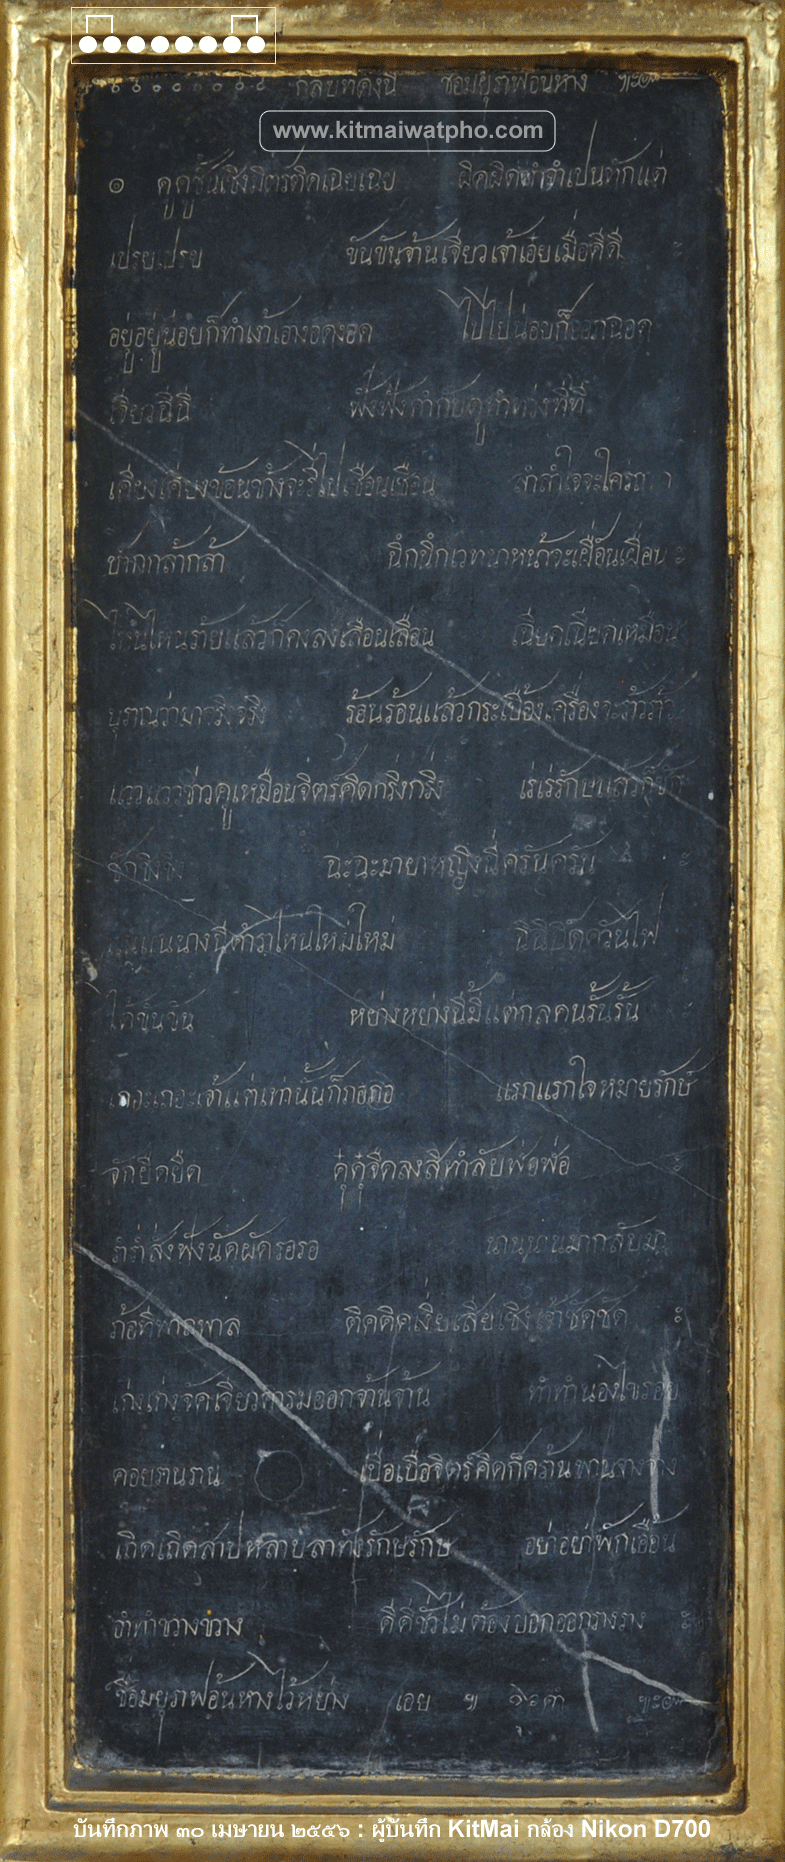 กลบทดังนี้ ชื่อมยุราฟ้อนหาง ๚ะ๛
www.kitmaiwatpho.com
๑ ดูดูชั้นเชิงมิตรคิดเฉยเฉย ผิดผิดทำจำเปนทักแต่
เปรยเปรย ขันขันจ้านเจียวเจ้าเอ๋ยเมื่อดีดี ะ
อยู่อยู่น่อยก็ทำเง้าเอางอดงอด ไปไปน่อยก็
ฉี่ฉี่ ฟังฟังคำกับดูทำ ที่ที่
เคียงเคียงข้อนข้างจะรี่ไปเชือนเชือน ลำลำใจจะใคร
ชากกล้ากล้า นึกนึกเวทนาหน้าจะเฝื่อนเฝื่อน ะ
ไหนไหนร้ายแล้วก็คงลงเลื่อนเลื่อน เนียดเนียดเหมือน
บุราณว่ามาจริงจริง ร้อนร้อนแล้วกระเบื้องเครื่องจะร้าวร้าว
แววแววข่าวดูเหมือนจิตร์คิดกริ่งกริ่ง เร่เร่รักษแล้วก็ชัก
ชักชิงชิง ฉะฉะมายาหญิงนี่ครันครัน ะ
นางนี่ตำราไหนใหม่ใหม่ ควันไฟ
ได้ขันขัน หย่างหย่างนี้มีแต่กลคนรั้นรั้น ะ
เถอะเถอะเจ้าแต่เท่านั้นก็กอกอ แรกแรกใจหมายรักษ์
จักยืดยืด ดุ๋ดุ๋จืดลงสิทำลับพ่อพ่อ ะ
ร่ำร่ำสั่งฟังนัดผัดรอรอ นานนานมากลับมา
ภ้อทิพาลพาล ติดติดเงี่ยเสียเชิงเจ้าชัดชัด ะ
เก่งเก่งจัดเจียวคารมออกจ้านจ้าน ทำทำน่องไขรอย
คอยรานราน เบื่อเบื่อจิตร์คิดก็คร้านพานจางจาง
เถิดเถิดสาปหลาบลาทั้งรักษรักษ อย่าอย่าพักเอื้อน
อำทำขวางขวาง ดีดีชั่วไม่ต้องบอกออกรางราง ะ
ชื่อมยุราฟ้อนหางไว้หย่าง เอย ๚ ๛
บันทึกภาพ ๓๐ เมษายน ๒๕๕๖ : ผู้บันทึก KitMai กล้อง Nikon D700